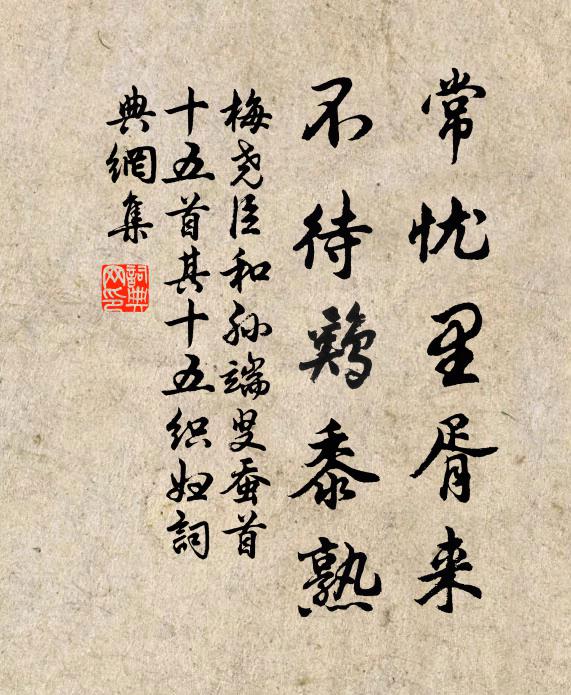 常忧里胥来
不待鷄黍熟
梅尧臣和孙端叟蚕首
十五首其十五织妇詞
典網集
詞典网印